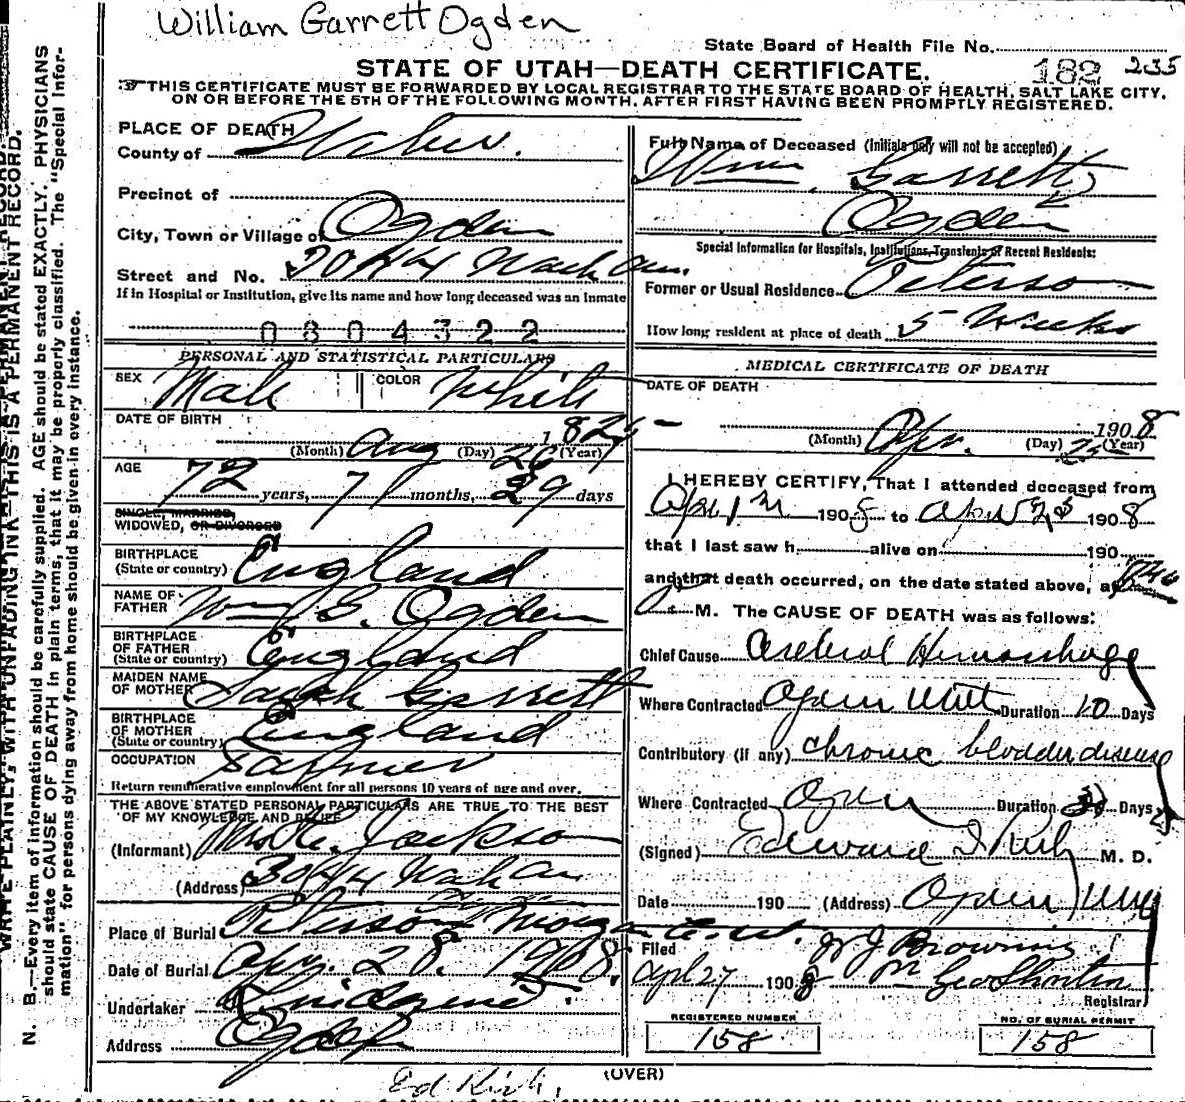 William Garrett Ogden
State Board of Health File No.
STATE OF UTAH—DEATH CERTIFICATE.
182 235
THIS CERTIFICATE MUST BE FORWARDED BY LOCAL REGISTRAR TO THE STATE BOARD OF HEALTH, SALT LAKE CITY,
ON OR BEFORE THE 5TH OF THE FOLLOWING MONTH, AFTER FIRST HAVING BEEN PROMPTLY REGISTERED.
WRITE PLAINLY, WITH UNFADING INK—THIS IS A PERMANENT RECORD.
N. B.—Every item of information should be carefully supplied. AGE should be stated EXACTLY. PHYSICIANS
should state CAUSE OF DEATH in plain terms, that it may be properly classified. The "Special Infor-
mation" for persons dying away from home should be given in every instance.
PLACE OF DEATH
County of Weber.
Precinct of
City, Town or Village of Ogden
Street and No. Wash Ave.
If in Hospital or Institution, give its name and how long deceased was an inmate
0804322
PERSONAL AND STATISTICAL PARTICULARS
SEX Male COLOR White
DATE OF BIRTH
(Month) Aug (Day) 26 (Year)
AGE
72 years, 7 months, 29 days
SINGLE, MARRIED,
WIDOWED, OR DIVORCED
BIRTHPLACE
(State or country) England
NAME OF
FATHER Wm G. Ogden
BIRTHPLACE
OF FATHER
(State or country) England
MAIDEN NAME
OF MOTHER Sarah Garrett
BIRTHPLACE
OF MOTHER
(State or country) England
OCCUPATION Farmer
Return remunerative employment for all persons 10 years of age and over.
THE ABOVE STATED PERSONAL PARTICULARS ARE TRUE TO THE BEST
OF MY KNOWLEDGE AND BELIEF
(Informant) Jackson
(Address) Wash Ave
Place of Burial Peterson Morgan
Date of Burial Apr. 28. 1908.
Undertaker
Address Ogden
Full Name of Deceased (Initials only will not be accepted)
Wm. Garrett
Ogden
Special Information for Hospitals, Institutions, Transients or Recent Residents:
Former or Usual Residence Peterson
How long resident at place of death 5 Weeks
MEDICAL CERTIFICATE OF DEATH
DATE OF DEATH
1908
(Month) Apr. (Day) 25 (Year)
I HEREBY CERTIFY, That I attended deceased from
190 5 to April 25 1908
that I last saw h alive on 190
and that death occurred, on the date stated above, at
M. The CAUSE OF DEATH was as follows:
Chief Cause Cerebral Hemorrhage
Where Contracted Ogden Utah Duration 10 Days
Contributory (if any) chronic bladder disease
Where Contracted Ogden Duration Days
(Signed) Edward I Rich M. D.
Date 190 (Address) Ogden Utah
Filed J Browning
Apl 27 1908 Geo Shorten
Registrar
REGISTERED NUMBER
158
NO. OF BURIAL PERMIT
158
(OVER)
Ed Rich.